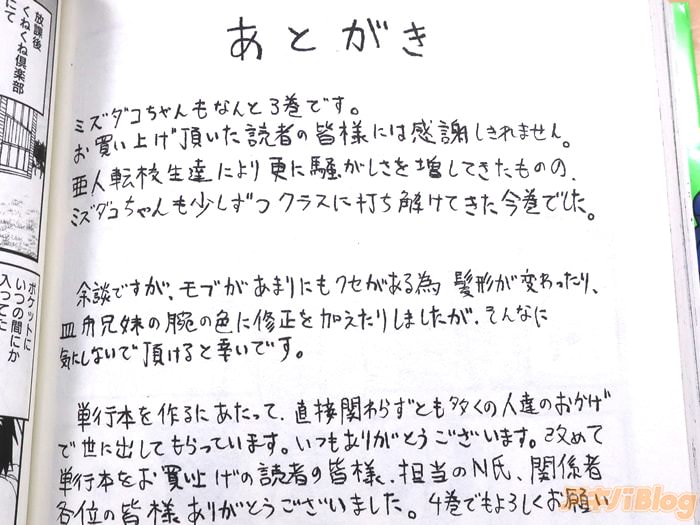 あとがき
ミズダコちゃんもなんと3巻です。
お買い上げ頂いた読者の皆様には感謝しきれません。
亜人転校生達により更に騒がしさを増してきたものの、
ミズダコちゃんも少しずつクラスに打ち解けてきた今巻でした。
余談ですが、モブがあまりにもクセがある為 髪形が変わったり、
皿舟兄妹の腕の色に修正を加えたりしましたが、そんなに
気にしないで頂けると幸いです。
単行本を作るにあたって、直接関わらずとも多くの人達のおかげ
で世に出してもらっています。いつもありがとうございます。改めて
単行本をお買い上げの読者の皆様、担当のN氏、関係者
各位の皆様ありがとうございました。4巻でもよろしくお願い
放課後
くねくね倶楽部
にて
ポケットに
いつの間にか
入ってた
アキバBlog